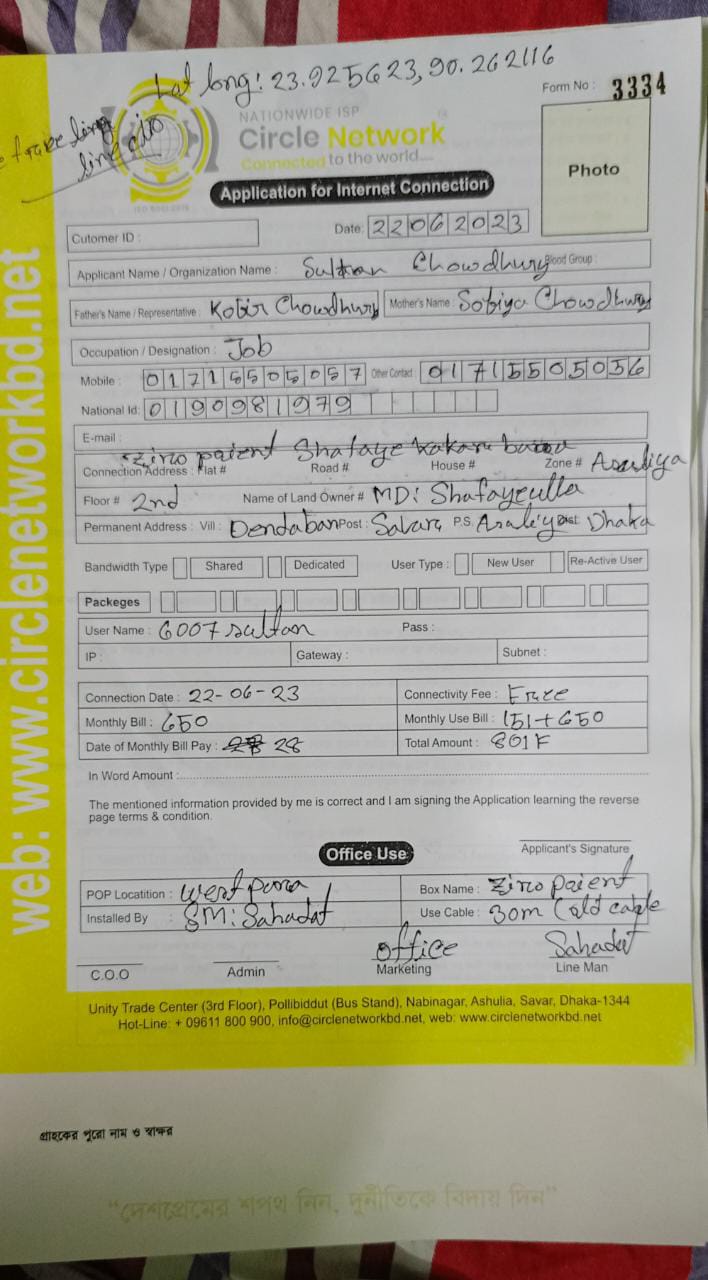 Lat long: 23.925623, 90.262116
Form No : 3334
line
NATIONWIDE ISP
Circle Network
Connected to the world....
Photo
Application for Internet Connection
Cutomer ID :
Date: 22062023
Applicant Name / Organization Name : Sultan Chowdhury Blood Group :
Father's Name / Representative : Kobir Chowdhury Mother's Name : Sobiya Chowdhury
Occupation / Designation : Job
Mobile : 01715505057 Other Contact : 01715505056
National Id: 0190981979
E-mail :
ziro paient Shafaye
Connection Address : Flat # Road # House # Zone # Asuliya
Floor # 2nd Name of Land Owner # MD: Shafayeulla
Permanent Address : Vill : Dendaban Post : Savar, P.S. Asuliya Dist: Dhaka
Bandwidth Type Shared Dedicated User Type : New User Re-Active User
Packeges
User Name : 6007sultan Pass :
IP : Gateway : Subnet :
Connection Date : 22-06-23 Connectivity Fee : Free
Monthly Bill : 650 Monthly Use Bill : 151+650
Date of Monthly Bill Pay : 28 Total Amount : 801
In Word Amount :
The mentioned information provided by me is correct and I am signing the Application learning the reverse
page terms & condition.
Applicant's Signature
Office Use
POP Locatition : West para Box Name : ziro paient
Installed By : SM: Sahadat Use Cable : 30m (old cable
office Sahadat
C.O.O Admin Marketing Line Man
Unity Trade Center (3rd Floor), Pollibiddut (Bus Stand), Nabinagar, Ashulia, Savar, Dhaka-1344
Hot-Line: + 09611 800 900, info@circlenetworkbd.net, web: www.circlenetworkbd.net
web: www.circlenetworkbd.net
গ্রাহকের পুরো নাম ও স্বাক্ষর
“দেশপ্রেমের শপথ নিন, দুর্নীতিকে বিদায় দিন”